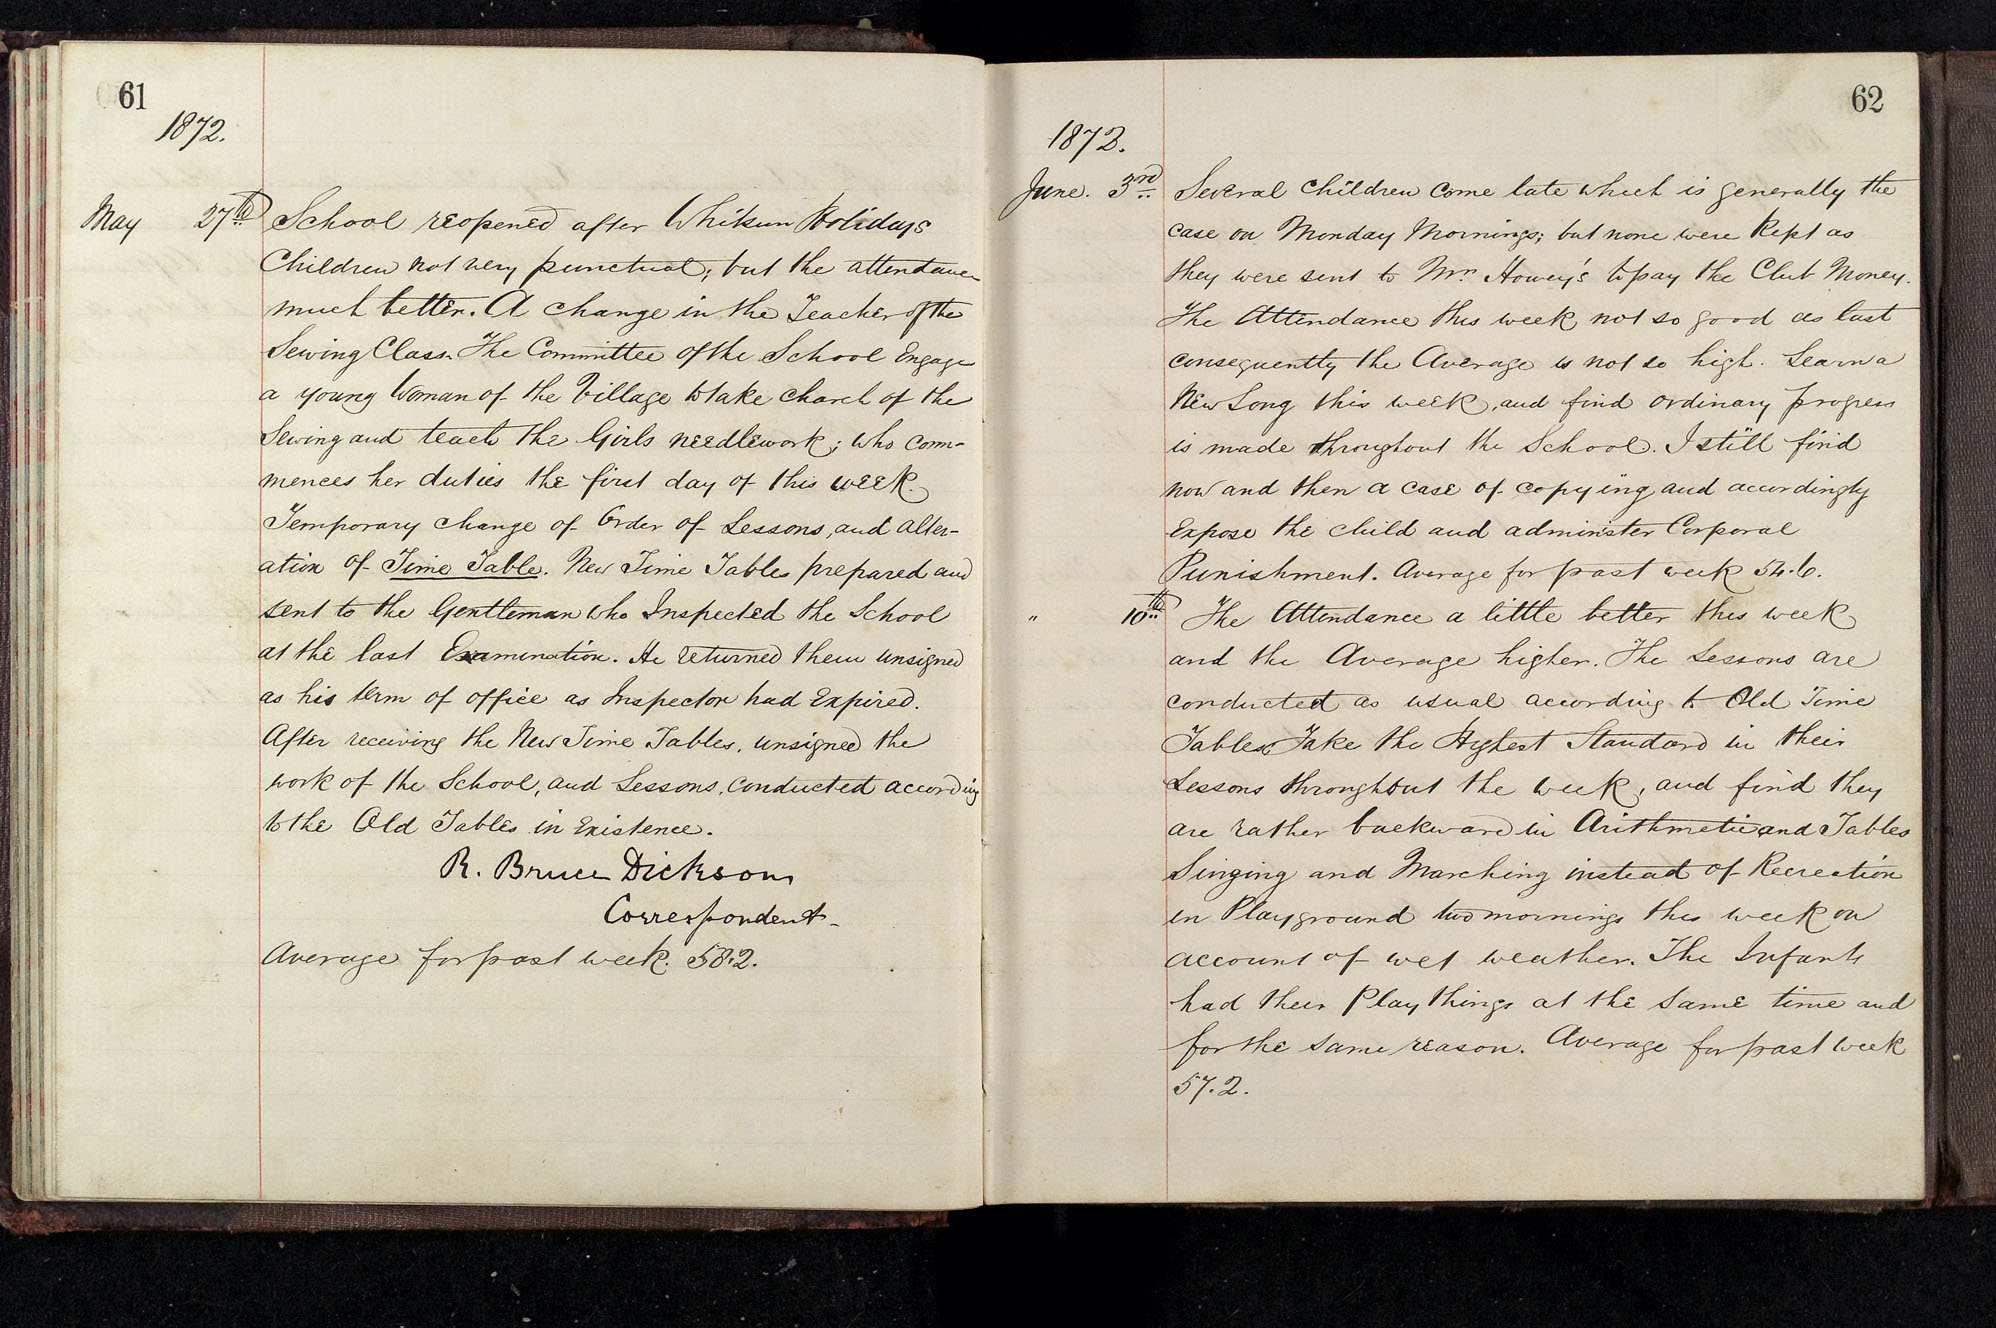 61
1872.
May 27th School reopened after Whitsun Holidays
Children not very punctual; but the attendance
much better. A change in the Teacher of the
Sewing Class. The Committee of the School Engage
a young Woman of the Village to take charch of the
Sewing and teach the Girls needlework; who com-
mences her duties the first day of this week.
Temporary change of Order of Lessons, and alter-
ation of Time Table. New Time Tables prepared and
sent to the Gentleman who Inspected the School
at the last Examination. He returned them unsigned
as his term of office as Inspector had Expired.
After receiving the New Time Tables, unsigned the
work of the School, and Lessons, conducted according
to the Old Tables in Existence.
R. Bruce Dickson
Correspondent
Average for past week. 58.2.
62
1872.
June. 3rd Several children come late which is generally the
case on Monday Mornings; but none were Kept as
they were sent to Mrs Howey's to pay the Club Money.
The Attendance this week not so good as last
consequently the Average is not so high. Learn a
New Song this week, and find ordinary progress
is made throughout the School. I still find
now and then a case of copying and accordingly
Expose the child and administer Corporal
Punishment. Average for past week 54.6.
" 10th The Attendance a little better this week
and the Average higher. The Lessons are
conducted as usual according to Old Time
Tables. Take the Highest Standard in their
Lessons throughout the week, and find they
are rather backward in Arithmetic and Tables
Singing and Marching instead of Recreation
in Playground two mornings this week on
account of wet weather. The Infants
had their Play things at the same time and
for the same reason. Average for past week
57.2.